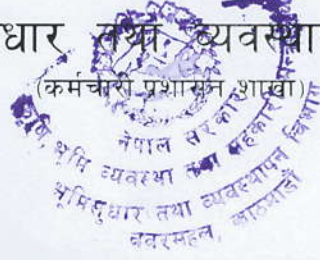 धार तथा व्यवस्था
(कर्मचारी प्रशासन शाखा)
नेपाल सरकार
कृषि, भूमि व्यवस्था तथा सहकारी
भूमिसुधार तथा व्यवस्थापन विभाग
बबरमहल, काठमाडौं